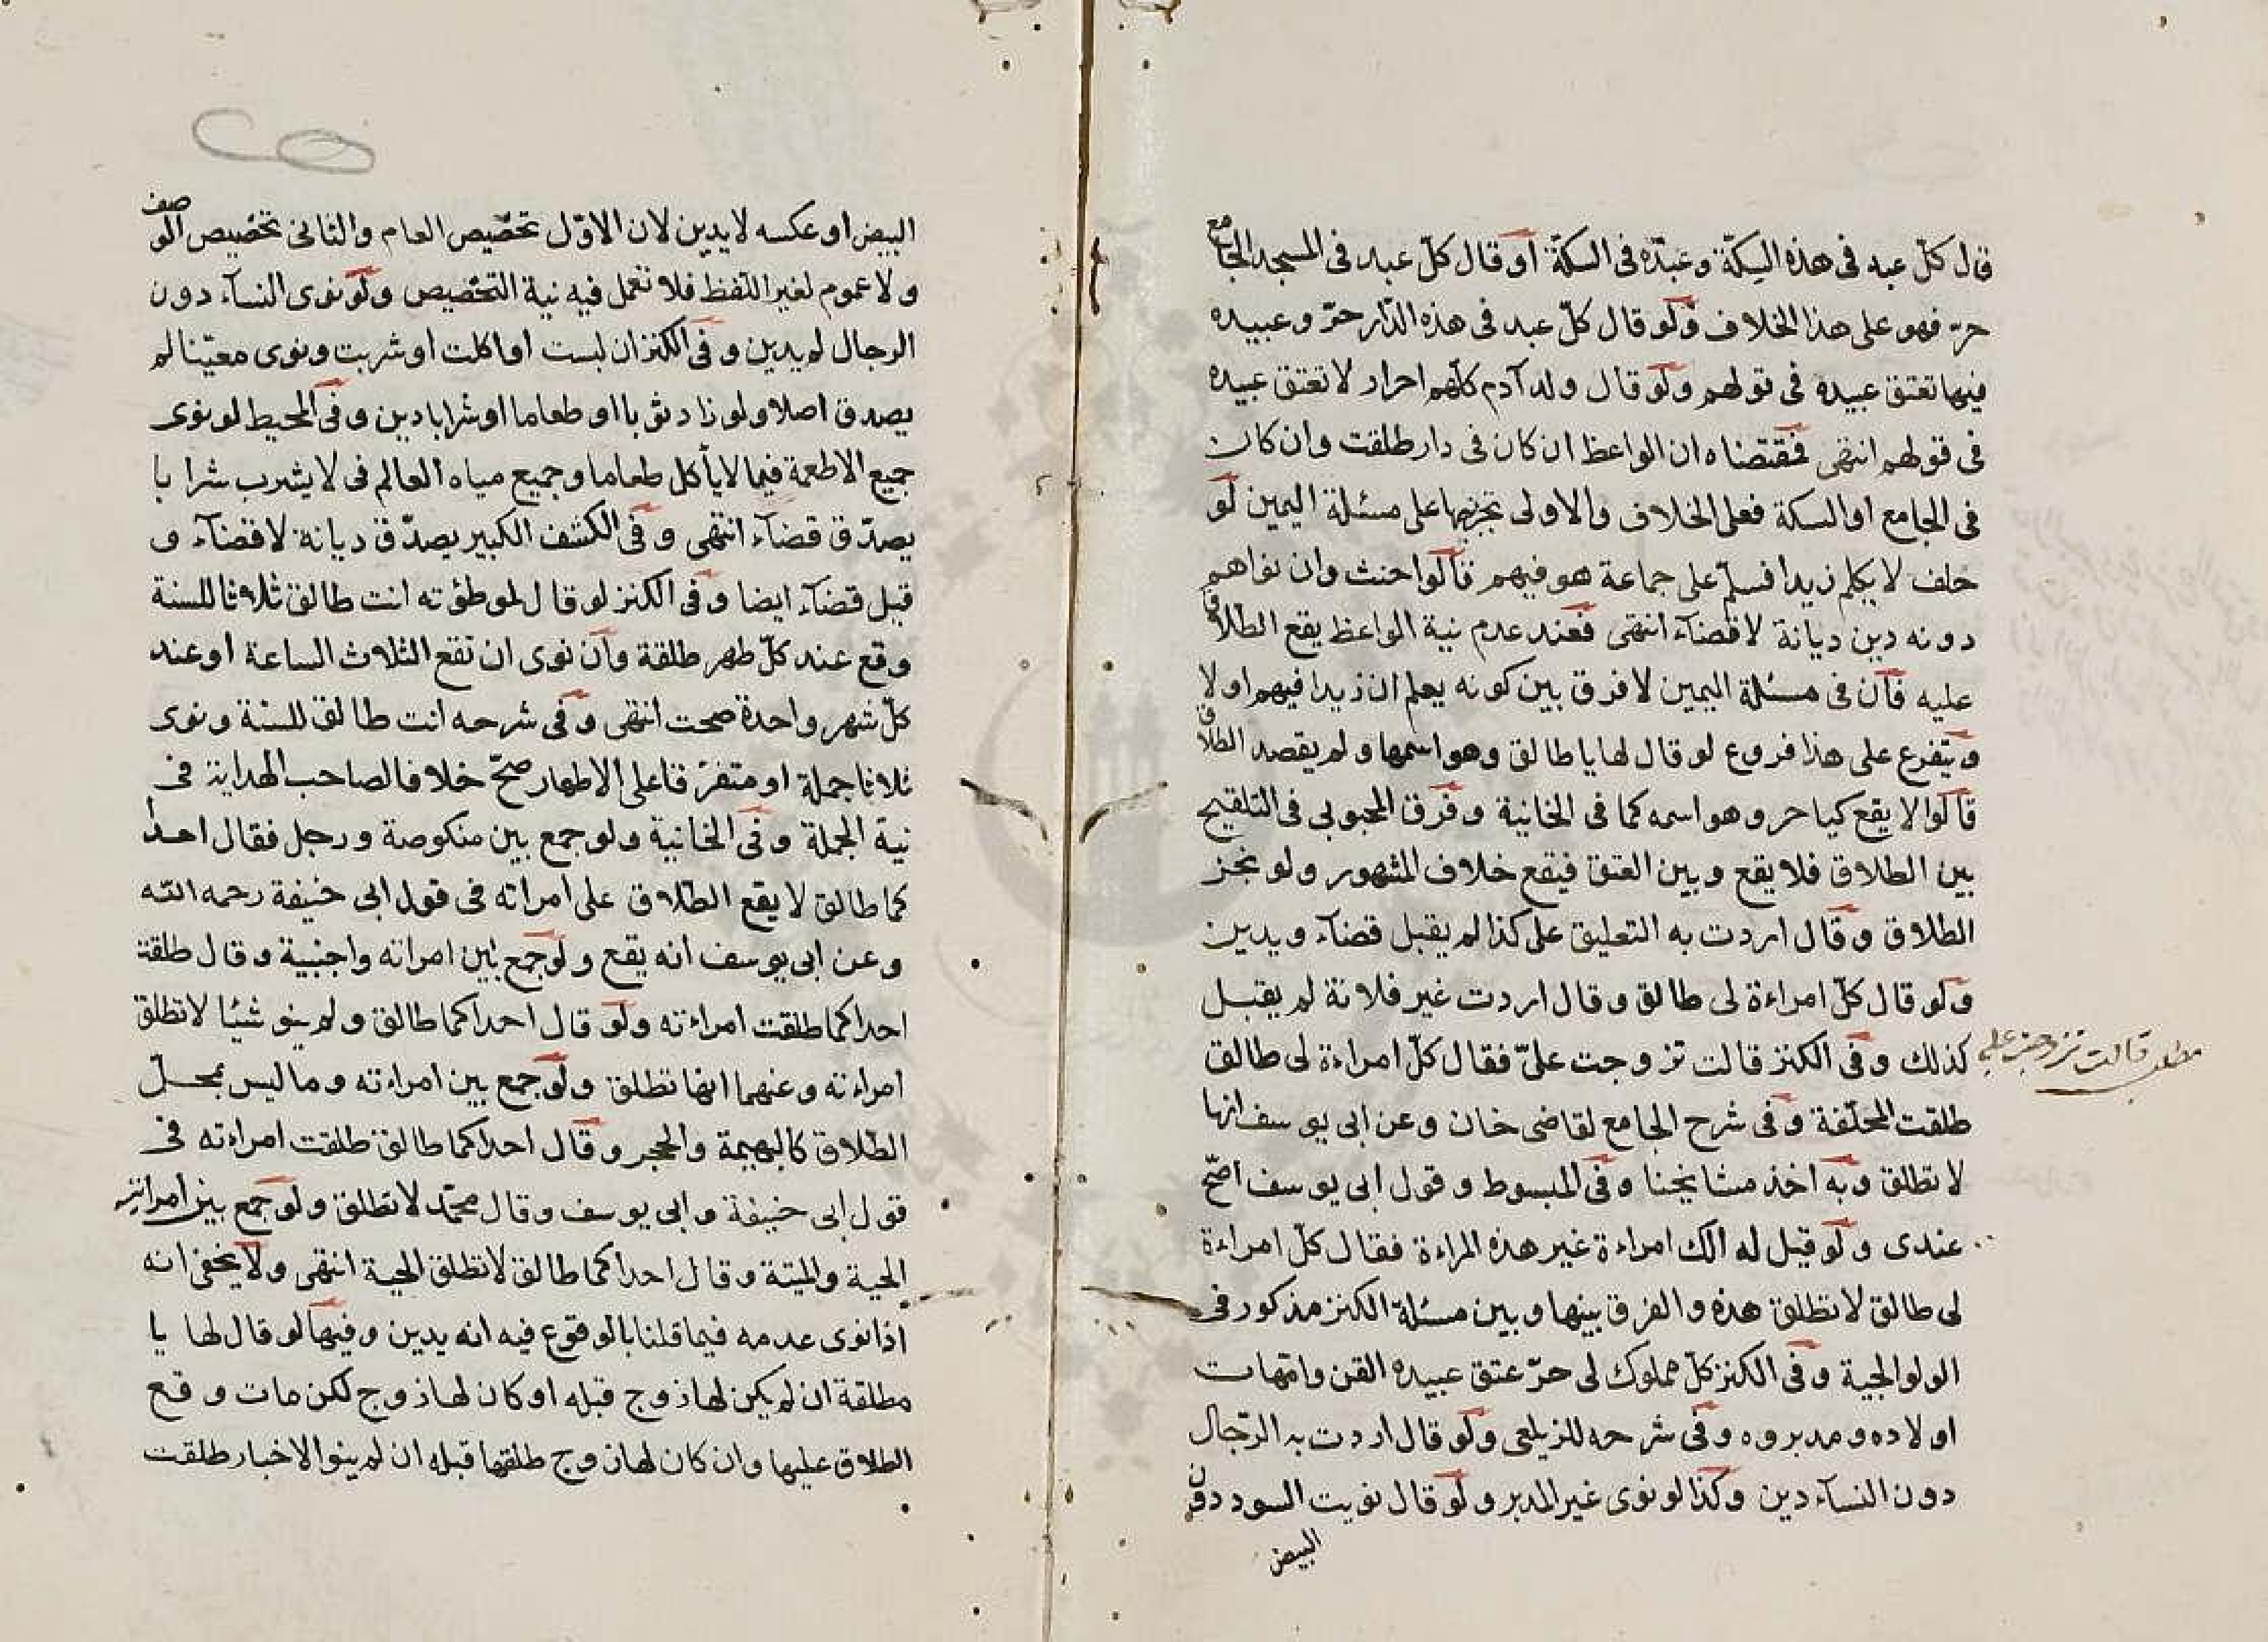 قال كلّ عبد فى هذه السكّة وعبده فى السكّة أو قال كلّ عبد فى المسجد الجامع
حرّ فهو على هذا الخلاف ولو قال كلّ عبد فى هذه الدّار حرّ وعبيده
فيها تعتق عبيده فى قولهم ولو قال ولد آدم كلّهم احرار لا تعتق عبيده
فى قولهم انتهى فمقتضاه ان الواعظ ان كان فى دار طلقت وان كان
فى الجامع او السكة فعلى الخلاف والاولى تخريجها على مسئلة اليمين لو
حلف لا يكلم زيدا فسلّم على جماعة هو فيهم قالوا حنث وان نواهم
دونه دين ديانة لا قضآء انتهى فعند عدم نية الواعظ يقع الطلاق
عليه فان فى مسئلة اليمين لا فرق بين كونه يعلم ان زيدا فيهم او لا
ويتفرع على هذا فروع لو قال لها يا طالق وهو اسمها ولم يقصد الطلاق
قالوا لا يقع كيا حر وهو اسمه كما فى الخانية وفرق المحبوبى فى التلقيح
بين الطلاق فلا يقع وبين العتق فيقع خلاف المشهور ولو نجز
الطلاق وقال اردت به التعليق على كذا لم يقبل قضآء ويدين
ولو قال كلّ امراءة لى طالق وقال اردت غير فلانة لم يقبل
كذلك وفى الكنز قالت تزوجت علىّ فقال كلّ امراءة لى طالق
مطلب قالت تزوجت على
طلقت المحلّفة وفى شرح الجامع لقاضى خان وعن ابى يوسف انها
لا تطلق وبه اخذ مشايخنا وفى المبسوط وقول ابى يوسف اصحّ
عندى ولو قيل له الك امراءة غير هذه المراءة فقال كلّ امراءة
لى طالق لا تطلق هذه والفرق بينها وبين مسئلة الكنز مذكور فى
الولوالجية وفى الكنز كلّ مملوك لى حرّ عتق عبيده القن وامّهات
اولاده ومدبروه وفى شرحه للزيلعى ولو قال اردت به الرّجال
دون النسآء دين وكذا لو نوى غير المدبر ولو قال نويت السود دون
البيض
البيض او عكسه لا يدين لان الاوّل تخصيص العام والثانى تخصيص الوصف
ولا عموم لغير اللفظ فلا تعمل فيه نية التخصيص ولو نوى النسآء دون
الرجال لم يدين وفى الكنز ان لبست او اكلت او شربت ونوى معيّنا لم
يصدق اصلا ولو زاد ثوبا او طعاما او شرابا دين وفى المحيط لو نوى
جميع الاطعمة فيما لا يأكل طعاما وجميع مياه العالم فى لا يشرب شرابا
يصدّق قضآء انتهى وفى الكشف الكبير يصدّق ديانة لا قضآء و
قيل قضآء ايضا وفى الكنز لو قال لموطؤته انت طالق ثلاثا للسنة
وقع عند كلّ طهر طلقة وان نوى ان تقع الثلاث الساعة او عند
كلّ شهر واحدة صحت انتهى وفى شرحه انت طالق للسنة ونوى
ثلاثا جملة او متفرّقا على الاطهار صحّ خلافا لصاحب الهداية فى
نية الجملة وفى الخانية ولو جمع بين منكوحة ورجل فقال احدا
كما طالق لا يقع الطلاق على امراته فى قول ابى حنيفة رحمه الله
وعن ابى يوسف انه يقع ولو جمع بين امراته واجنبية وقال طلقت
احداكما طلقت امراءته ولو قال احداكما طالق ولم ينو شيئا لا تطلق
امراءته وعنهما انها تطلق ولو جمع بين امراءته وما ليس بمحلّ
الطلاق كالبهيمة والحجر وقال احداكما طالق طلقت امراءته فى
قول ابى حنيفة وابى يوسف وقال محمّد لا تطلق ولو جمع بين امراتيه
الحية والميتة وقال احداكما طالق لا تطلق الحية انتهى ولا يخفى انه
اذا نوى عدمه فيما قلنا بالوقوع فيه انه يدين وفيها لو قال لها يا
مطلقة ان لم يكن لها زوج قبله او كان لها زوج لكن مات وقع
الطلاق عليها وان كان لها زوج طلقها قبله ان لم ينو الاخبار طلقت